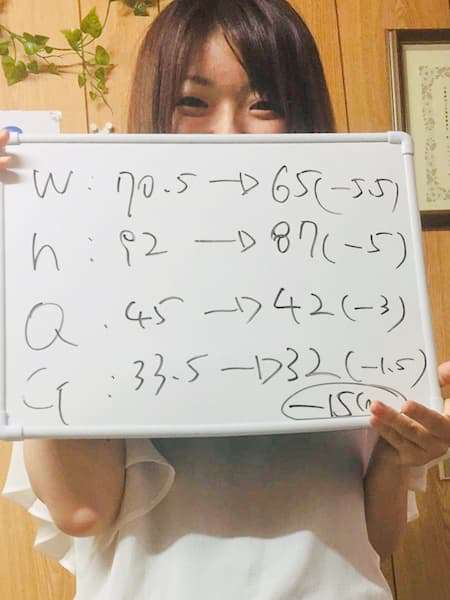 W : 70.5 → 65(-5.5)
h : 92 → 87(-5)
Q . 45 → 42(-3)
G : 33.5 → 32(-1.5)